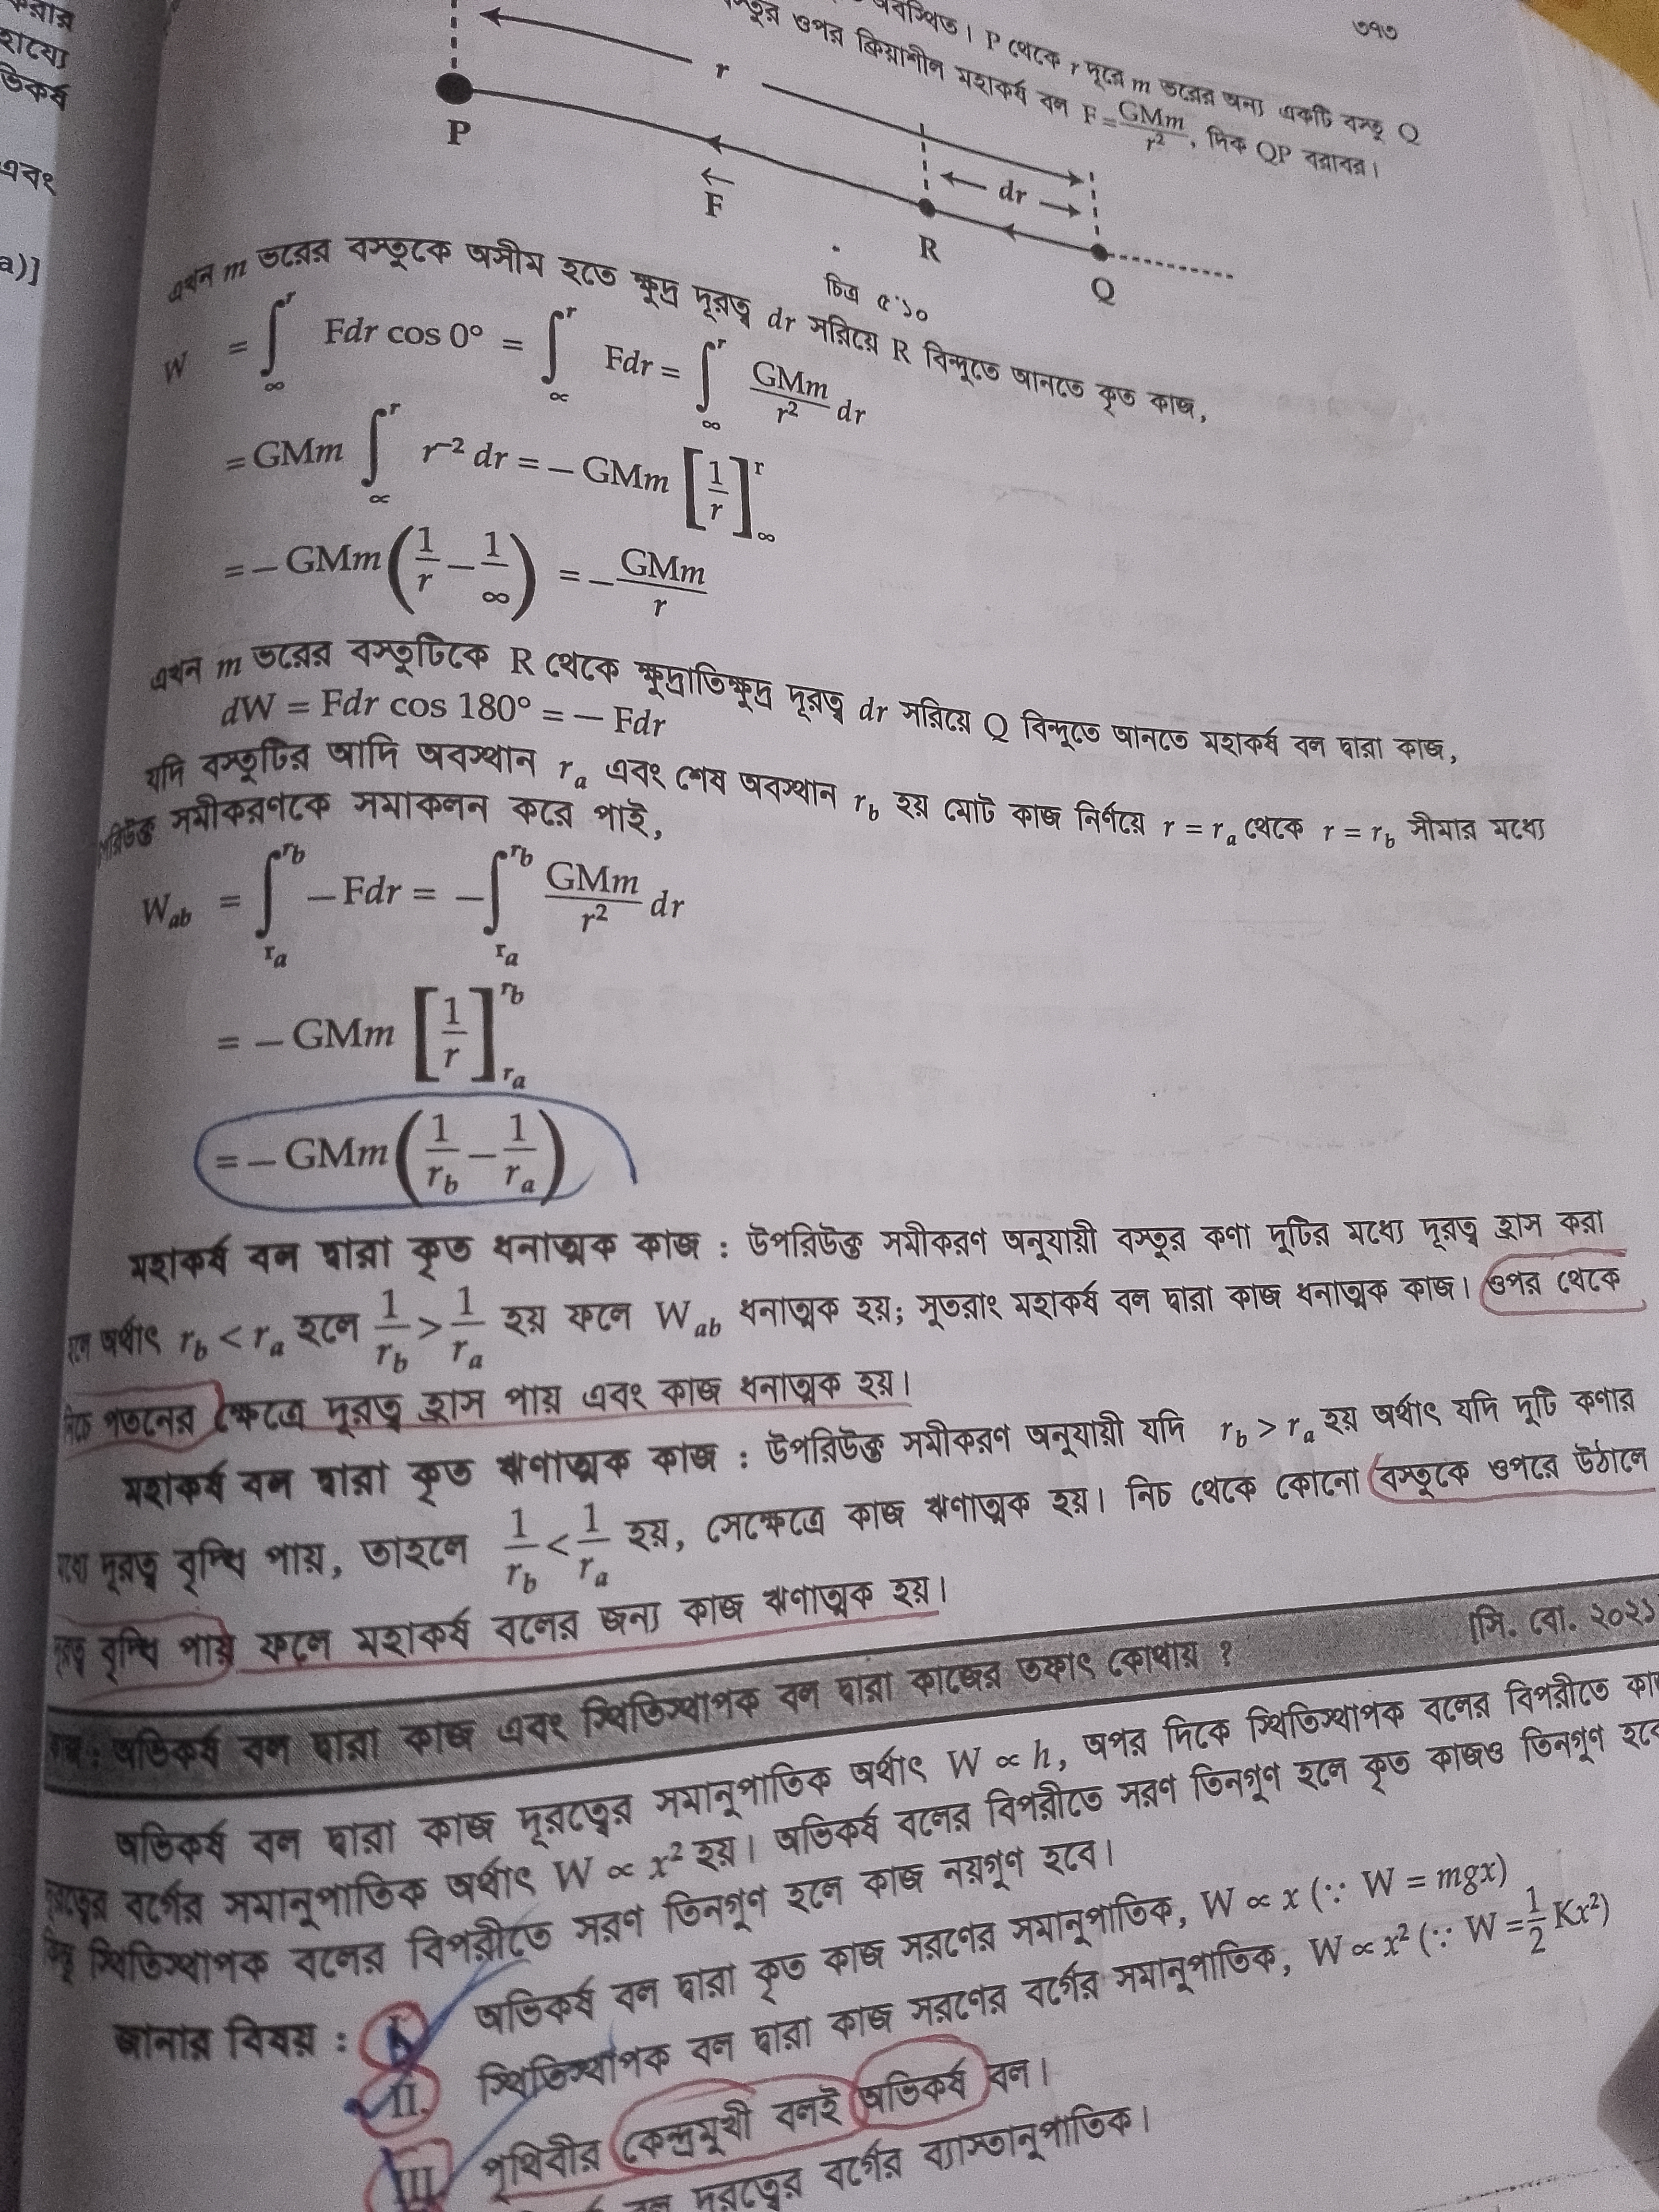 করার
হায্যে
ভিকর্ষ
এবং
a)]
৩৭৩
অবস্থিত। P থেকে r দূরে m ভরের অন্য একটি বস্তু Q
ওপর ক্রিয়াশীল মহাকর্ষ বল F = GMm/r², দিক QP বরাবর।
r
P
F
dr
R
Q
চিত্র ৫.১০
এখন m ভরের বস্তুকে অসীম হতে ক্ষুদ্র দূরত্ব dr সরিয়ে R বিন্দুতে আনতে কৃত কাজ,
W = ∫_∞^r Fdr cos 0° = ∫_∝^r Fdr = ∫_∞^r GMm/r² dr
= GMm ∫_∝^r r⁻² dr = – GMm [1/r]_∞^r
= – GMm (1/r – 1/∞) = – GMm/r
এখন m ভরের বস্তুটিকে R থেকে ক্ষুদ্রাতিক্ষুদ্র দূরত্ব dr সরিয়ে Q বিন্দুতে আনতে মহাকর্ষ বল দ্বারা কাজ,
dW = Fdr cos 180° = – Fdr
যদি বস্তুটির আদি অবস্থান r_a এবং শেষ অবস্থান r_b হয় মোট কাজ নির্ণয়ে r = r_a থেকে r = r_b সীমার মধ্যে
সমীকরণকে সমাকলন করে পাই,
W_ab = ∫_{r_a}^{r_b} – Fdr = – ∫_{r_a}^{r_b} GMm/r² dr
= – GMm [1/r]_{r_a}^{r_b}
= – GMm (1/r_b – 1/r_a)
মহাকর্ষ বল দ্বারা কৃত ধনাত্মক কাজ : উপরিউক্ত সমীকরণ অনুযায়ী বস্তুর কণা দুটির মধ্যে দূরত্ব হ্রাস করা
হলে অর্থাৎ r_b < r_a হলে 1/r_b > 1/r_a হয় ফলে W_ab ধনাত্মক হয়; সুতরাং মহাকর্ষ বল দ্বারা কাজ ধনাত্মক কাজ। ওপর থেকে
নিচে পতনের ক্ষেত্রে দূরত্ব হ্রাস পায় এবং কাজ ধনাত্মক হয়।
মহাকর্ষ বল দ্বারা কৃত ঋণাত্মক কাজ : উপরিউক্ত সমীকরণ অনুযায়ী যদি r_b > r_a হয় অর্থাৎ যদি দুটি কণার
মধ্যে দূরত্ব বৃদ্ধি পায়, তাহলে 1/r_b < 1/r_a হয়, সেক্ষেত্রে কাজ ঋণাত্মক হয়। নিচ থেকে কোনো বস্তুকে ওপরে উঠালে
দূরত্ব বৃদ্ধি পায় ফলে মহাকর্ষ বলের জন্য কাজ ঋণাত্মক হয়।
কাজ : অভিকর্ষ বল দ্বারা কাজ এবং স্থিতিস্থাপক বল দ্বারা কাজের তফাৎ কোথায় ? [সি. বো. ২০২১
অভিকর্ষ বল দ্বারা কাজ দূরত্বের সমানুপাতিক অর্থাৎ W ∝ h, অপর দিকে স্থিতিস্থাপক বলের বিপরীতে কা
দূরত্বের বর্গের সমানুপাতিক অর্থাৎ W ∝ x² হয়। অভিকর্ষ বলের বিপরীতে সরণ তিনগুণ হলে কৃত কাজও তিনগুণ হবে
কিন্তু স্থিতিস্থাপক বলের বিপরীতে সরণ তিনগুণ হলে কাজ নয়গুণ হবে।
জানার বিষয় : I. অভিকর্ষ বল দ্বারা কৃত কাজ সরণের সমানুপাতিক, W ∝ x (∵ W = mgx)
II. স্থিতিস্থাপক বল দ্বারা কাজ সরণের বর্গের সমানুপাতিক, W ∝ x² (∵ W = 1/2 Kx²)
III. পৃথিবীর কেন্দ্রমুখী বলই অভিকর্ষ বল।
বল দূরত্বের বর্গের ব্যাস্তানুপাতিক।